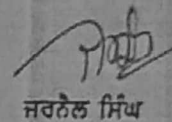 ਜਰਨੈਲ ਸਿੰਘ